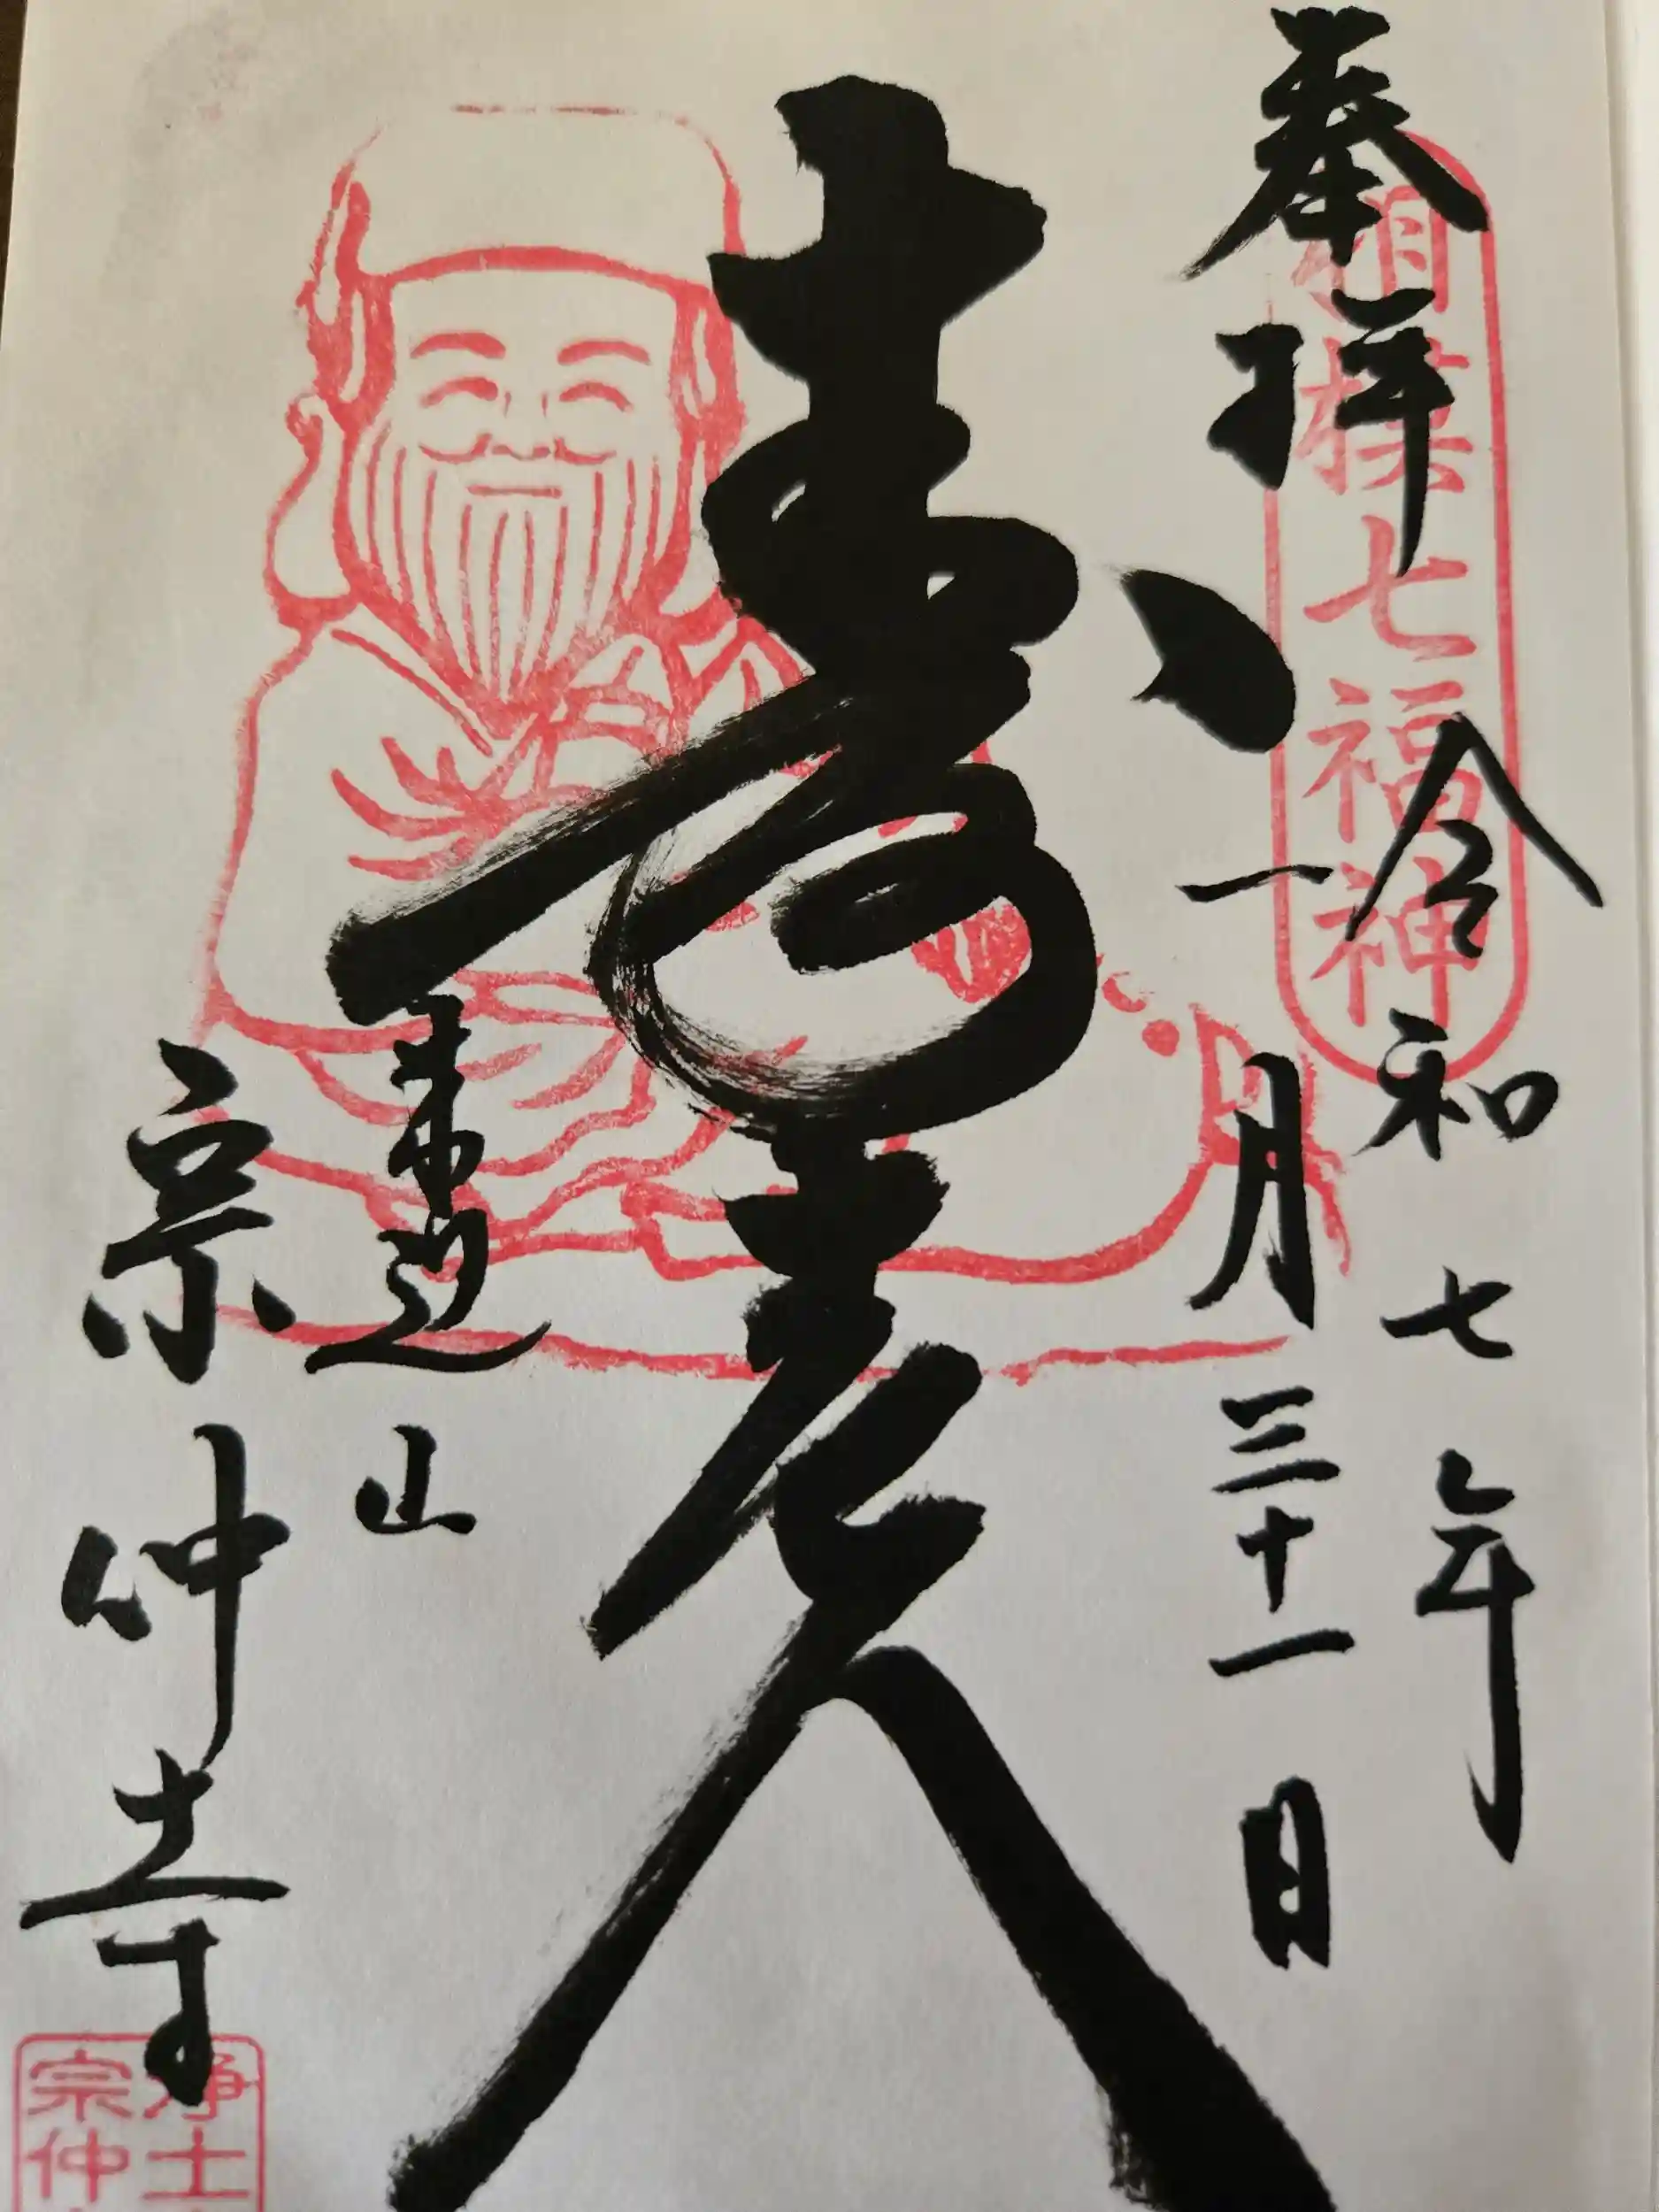 奉拝
相模七福神
令和七年
一月三十一日
寿老人
山
宗仲寺
浄土
宗仲